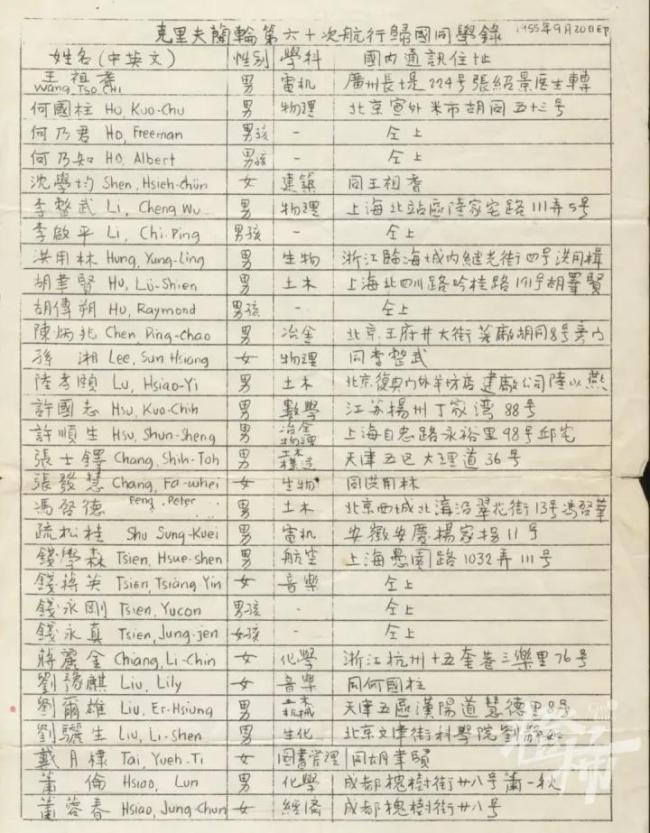 克里夫蘭輪第六十次航行歸國同學錄 1955年9月20日印
姓名(中英文) 性別 學科 國內通訊住址
王祖耆 Wang, Tso Chi 男 電机 廣州長堤224号張紹景医生轉
何國柱 Ho, Kuo-Chu 男 物理 北京宣外米市胡同五十三号
何乃君 Ho, Freeman 男孩 - 仝上
何乃知 Ho, Albert 男孩 - 仝上
沈學均 Shen, Hsieh-Chün 女 建築 同王祖耆
李整武 Li, Cheng Wu 男 物理 上海北站區陸家宅路111弄5号
李啟平 Li, Chi-Ping 男孩 - 仝上
洪用林 Hung, Yung-Ling 男 生物 浙江臨海城内継光街四号洪用楫
胡聿賢 Hu, Lü-Shien 男 土木 上海北四川路吟桂路191号胡睪賢
胡傳朔 Hu, Raymond 男孩 - 仝上
陳炳兆 Chen, Ping-Chao 男 冶金 北京王府井大街 胡同8号旁门
孫湘 Lee, Sun Hsiang 女 物理 同李整武
陸孝頤 Lu, Hsiao-Yi 男 土木 北京復興门外羊坊店建廠公司陸以燕
許國志 Hsu, Kuo-Chih 男 數學 江苏揚州丁家湾88号
許順生 Hsu, Shun-Sheng 男 冶金物理 上海自忠路永裕里98号邱宅
張士鐸 Chang, Shih-Toh 男 土木構造 天津五区大理道36号
張發慧 Chang, Fa-whei 女 生物 同洪用林
馮啓德 Feng, Peter 男 土木 北京西城北海沿翠花街13号馮啓華
疏松桂 Shu Sung-Kuei 男 電机 安徽安慶楊家拐11号
錢學森 Tsien, Hsue-shen 男 航空 上海愚園路1032弄111号
錢蔣英 Tsien, Tsiang Yin 女 音樂 仝上
錢永剛 Tsien, Yucon 男孩 - 仝上
錢永真 Tsien, Jung-jen 女孩 - 仝上
蔣麗金 Chiang, Li-Chin 女 化學 浙江杭州十五奎巷三樂里76号
劉豫麒 Liu, Lily 女 音樂 同何國柱
劉爾雄 Liu, Er-Hsiung 男 机械 天津五區漢陽道慧德里8号
劉驪生 Liu, Li-Shen 男 生化 北京文津街科學院劉
戴月棣 Tai, Yueh-Ti 女 圖書管理 同胡聿賢
蕭倫 Hsiao, Lun 男 化學 成都槐樹街廿八号蕭一秋
蕭蓉春 Hsiao, Jung-Chun 女 經濟 成都槐樹街廿八号